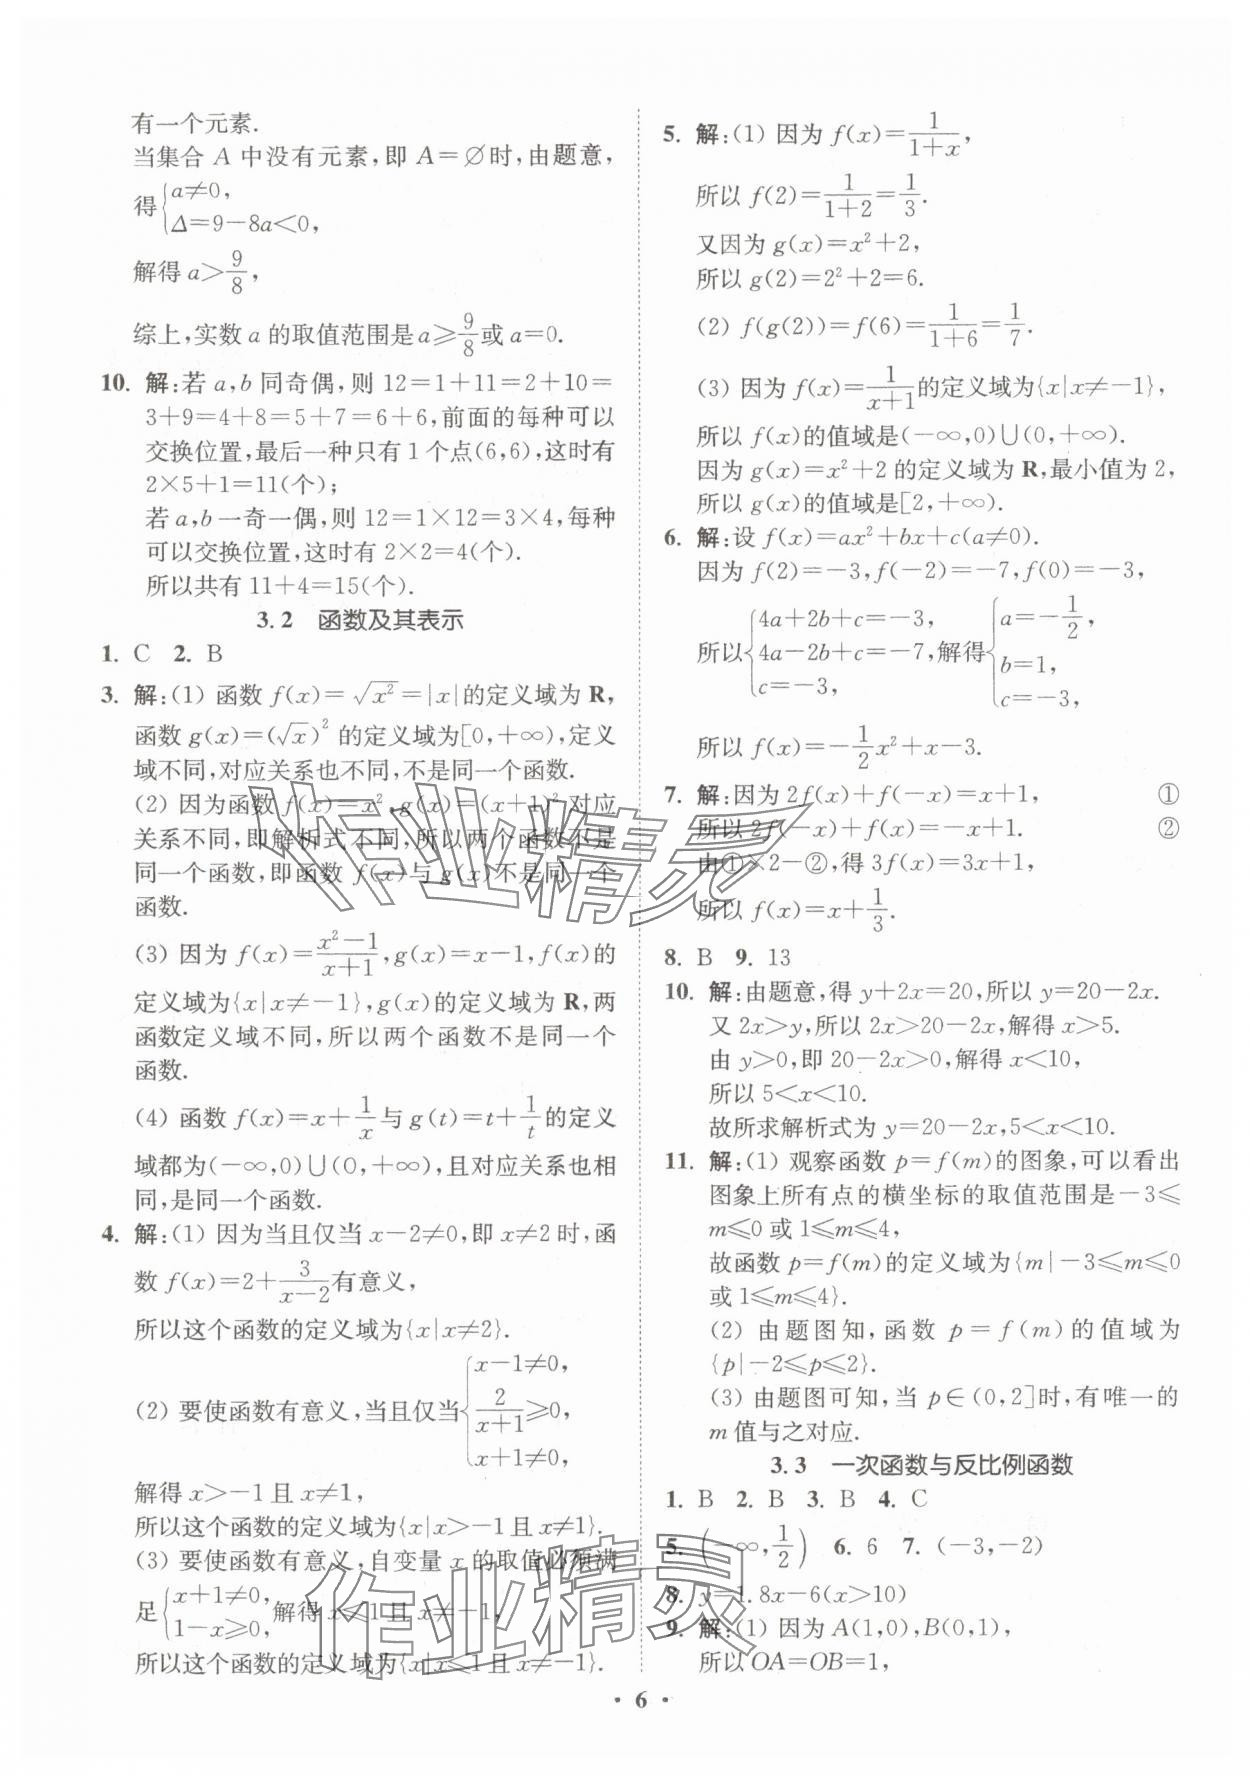 有一个元素.
当集合 A 中没有元素,即 A=∅时,由题意,
得{a≠0,
Δ=9-8a<0,
解得 a>9/8,
综上,实数 a 的取值范围是 a≥9/8或 a=0.
10. 解:若 a,b 同奇偶,则 12=1+11=2+10=
3+9=4+8=5+7=6+6,前面的每种可以
交换位置,最后一种只有 1 个点(6,6),这时有
2×5+1=11(个);
若 a,b 一奇一偶,则 12=1×12=3×4,每种
可以交换位置,这时有 2×2=4(个).
所以共有 11+4=15(个).
3.2 函数及其表示
1. C 2. B
3. 解:(1) 函数 f(x)=√x²=|x|的定义域为 R,
函数 g(x)=(√x)² 的定义域为[0,+∞),定义
域不同,对应关系也不同,不是同一个函数.
(2) 因为函数 f(x)=x²,g(x)=(x+1)²对应
关系不同,即解析式不同,所以两个函数不是
同一个函数,即函数 f(x)与 g(x)不是同一个
函数.
(3) 因为 f(x)=(x²-1)/(x+1),g(x)=x-1,f(x)的
定义域为{x|x≠-1},g(x)的定义域为 R,两
函数定义域不同,所以两个函数不是同一个
函数.
(4) 函数 f(x)=x+1/x与 g(t)=t+1/t的定义
域都为(-∞,0)∪(0,+∞),且对应关系也相
同,是同一个函数.
4. 解:(1) 因为当且仅当 x-2≠0,即 x≠2 时,函
数 f(x)=2+3/(x-2)有意义,
所以这个函数的定义域为{x|x≠2}.
(2) 要使函数有意义,当且仅当{x-1≠0,
2/(x+1)≥0,
x+1≠0,
解得 x>-1 且 x≠1,
所以这个函数的定义域为{x|x>-1 且 x≠1}.
(3) 要使函数有意义,自变量 x 的取值必须满
足{x+1≠0,
1-x≥0,解得 x≤1 且 x≠-1,
所以这个函数的定义域为{x|x≤1 且 x≠-1}.
5. 解:(1) 因为 f(x)=1/(1+x),
所以 f(2)=1/(1+2)=1/3.
又因为 g(x)=x²+2,
所以 g(2)=2²+2=6.
(2) f(g(2))=f(6)=1/(1+6)=1/7.
(3) 因为 f(x)=1/(x+1)的定义域为{x|x≠-1},
所以 f(x)的值域是(-∞,0)∪(0,+∞).
因为 g(x)=x²+2 的定义域为 R,最小值为 2,
所以 g(x)的值域是[2,+∞).
6. 解:设 f(x)=ax²+bx+c(a≠0).
因为 f(2)=-3,f(-2)=-7,f(0)=-3,
所以{4a+2b+c=-3,
4a-2b+c=-7,
c=-3,
解得{a=-1/2,
b=1,
c=-3,
所以 f(x)=-1/2x²+x-3.
7. 解:因为 2f(x)+f(-x)=x+1, ①
所以 2f(-x)+f(x)=-x+1. ②
由①×2-②,得 3f(x)=3x+1,
所以 f(x)=x+1/3.
8. B 9. 13
10. 解:由题意,得 y+2x=20,所以 y=20-2x.
又 2x>y,所以 2x>20-2x,解得 x>5.
由 y>0,即 20-2x>0,解得 x<10,
所以 5<x<10.
故所求解析式为 y=20-2x,5<x<10.
11. 解:(1) 观察函数 p=f(m)的图象,可以看出
图象上所有点的横坐标的取值范围是-3≤
m≤0 或 1≤m≤4,
故函数 p=f(m)的定义域为{m|-3≤m≤0
或 1≤m≤4}.
(2) 由题图知,函数 p=f(m)的值域为
{p|-2≤p≤2}.
(3) 由题图可知,当 p∈(0,2]时,有唯一的
m 值与之对应.
3.3 一次函数与反比例函数
1. B 2. B 3. B 4. C
5. (-∞,1/2) 6. 6 7. (-3,-2)
8. y=1.8x-6(x>10)
9. 解:(1) 因为 A(1,0),B(0,1),
所以 OA=OB=1,
• 6 •
作业精灵
作业精灵